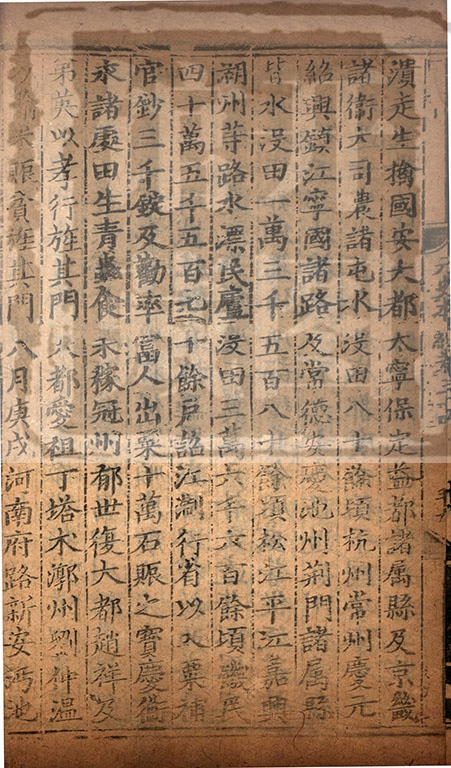 潰走生擒國安大都太寧保定益都諸屬縣及京畿
諸衛大司農諸屯水沒田八十餘頃杭州常州慶元
紹興鎮江寧國諸路及常德安慶池州荊門諸屬縣
皆水沒田一萬三千五百八十餘頃松江平江嘉興
湖州等路水漂民廬沒田三萬六千六百餘頃饑民
四十萬五千五百七十餘戶詔江浙行省以入粟補
官鈔三千錠及勸率富人出粟十萬石賑之寶慶衡
永諸處田生青蟲食禾稼冠州郁世復大都趙祥及
弟英以孝行旌其門大都愛祖丁塔朮漷州劉仲溫
賑貧旌其門八月庚戌河南府路新安沔池